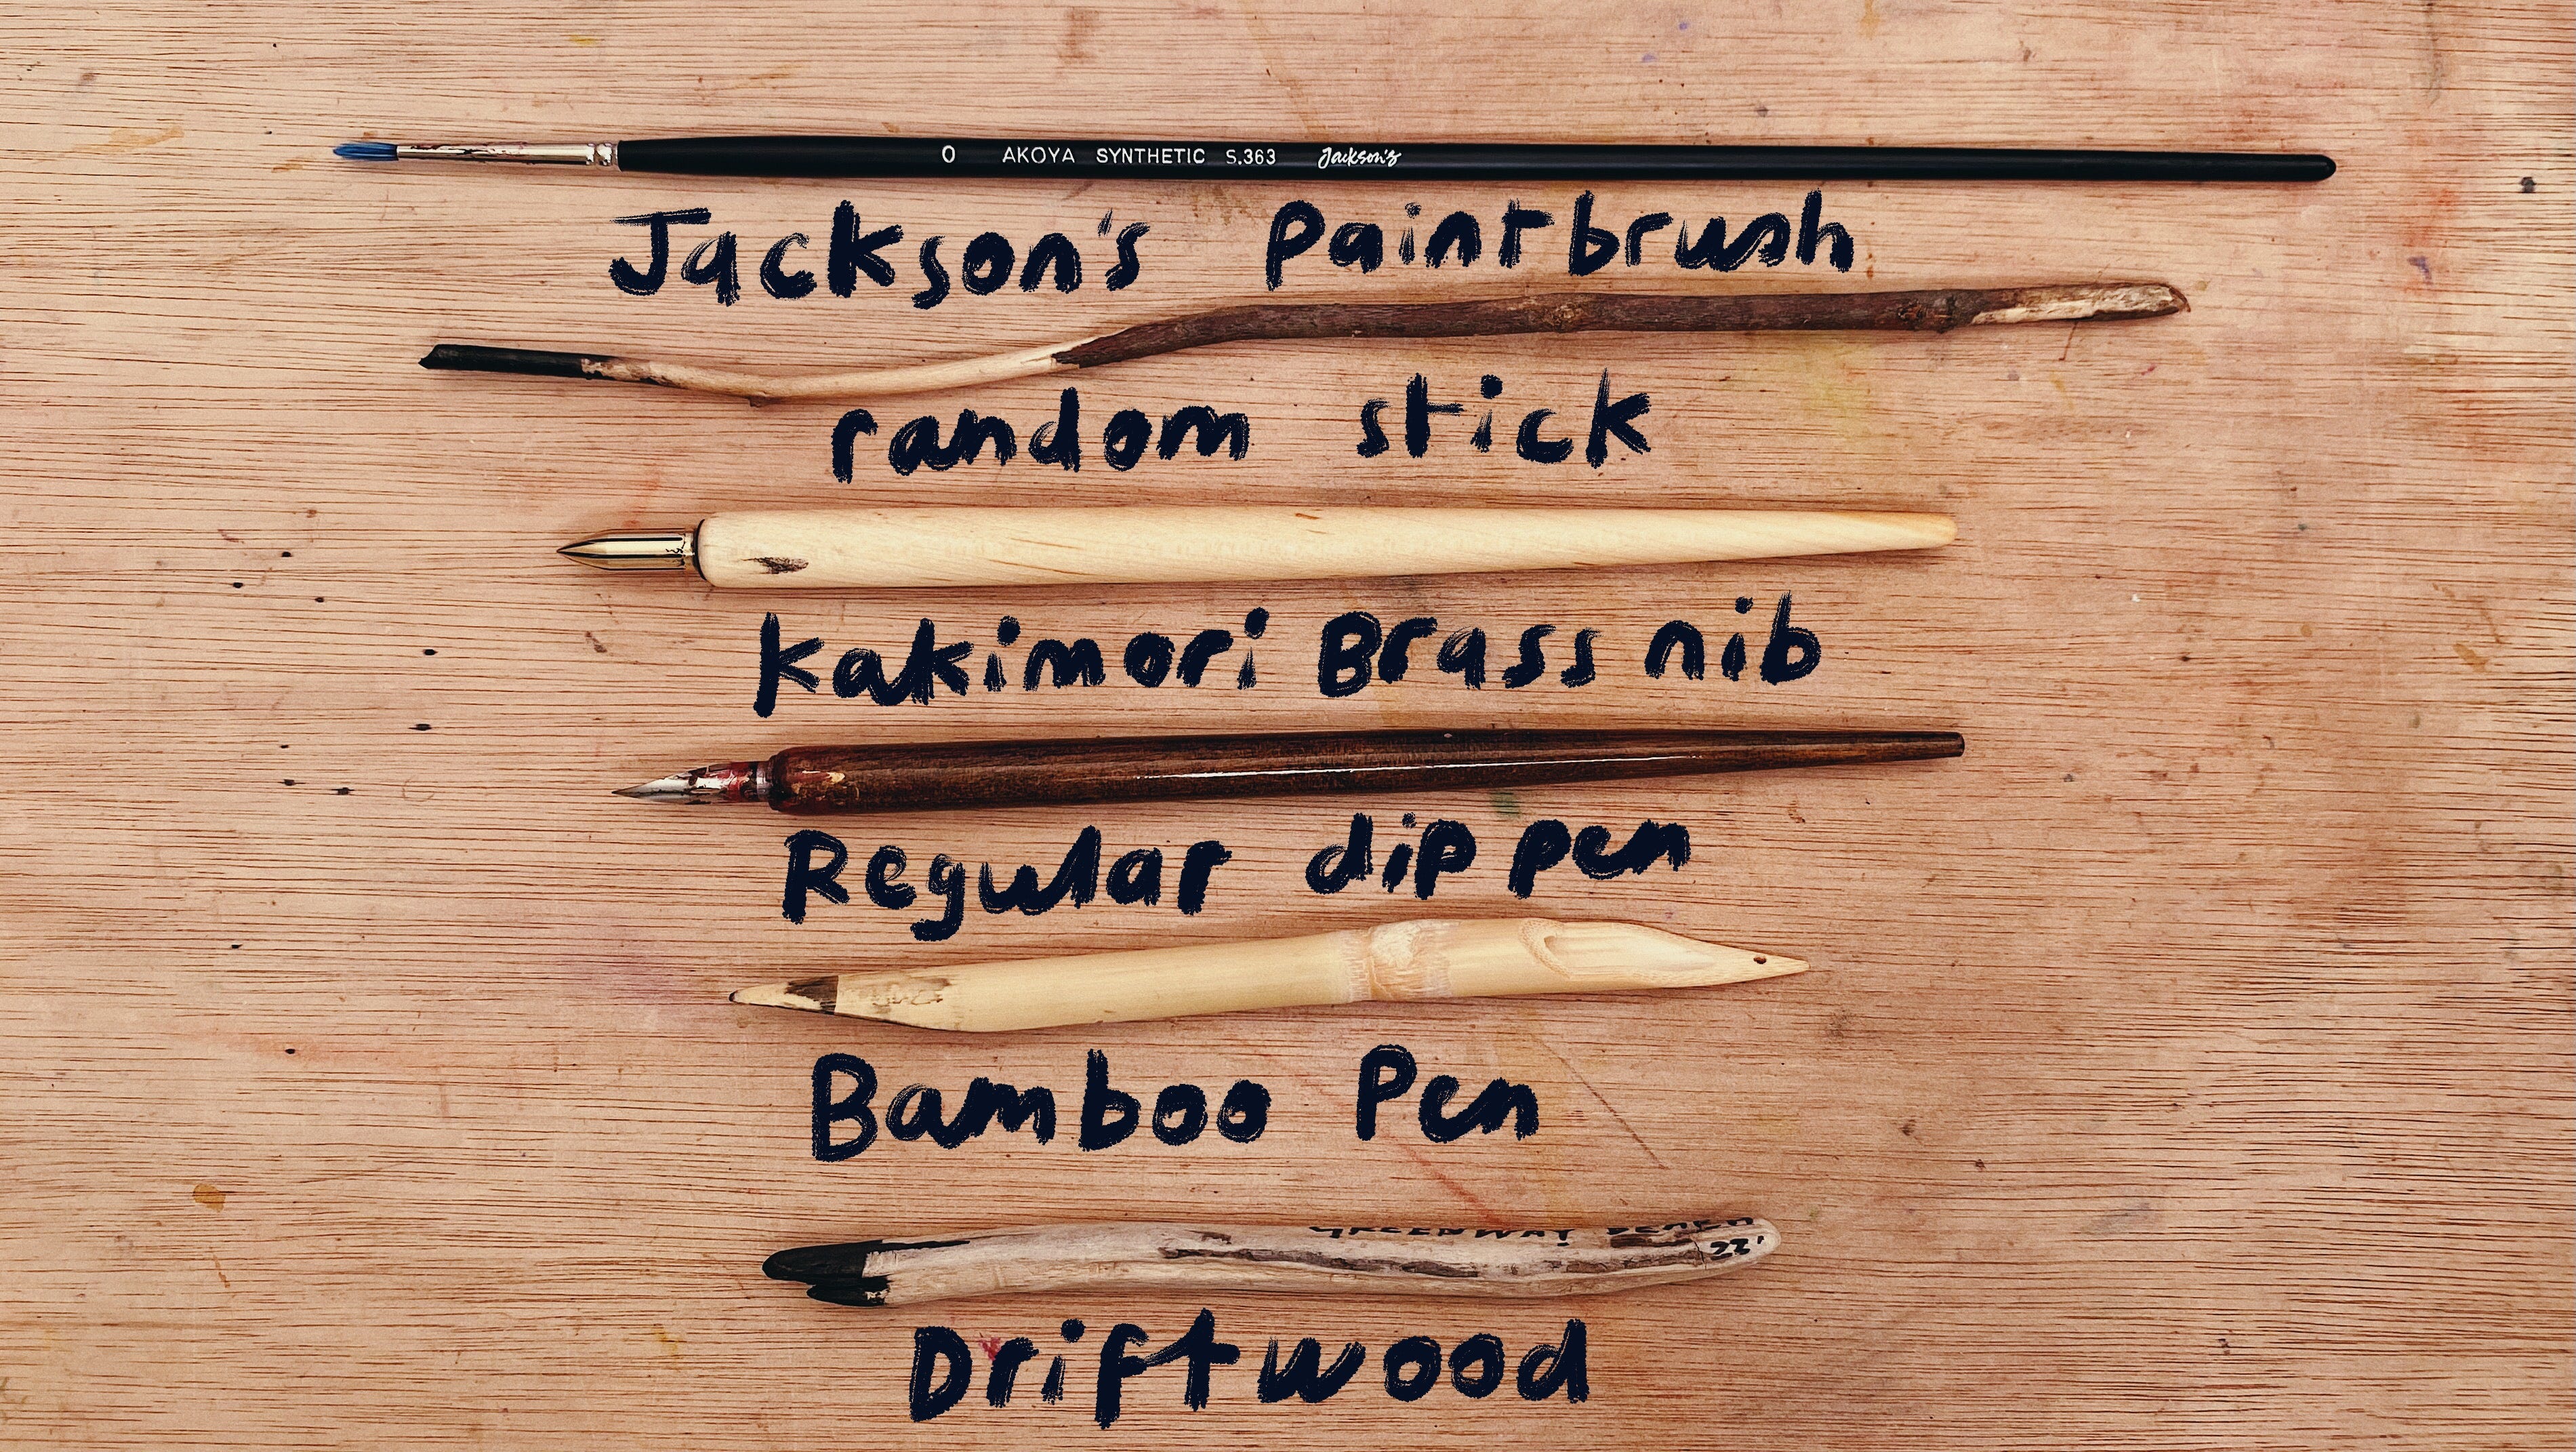 O AKOYA SYNTHETIC S.363 Jackson's
Jackson's Paintbrush
random stick
Kakimori Brass nib
Regular dip pen
Bamboo Pen
GREENWAY BEACH
'22
Driftwood